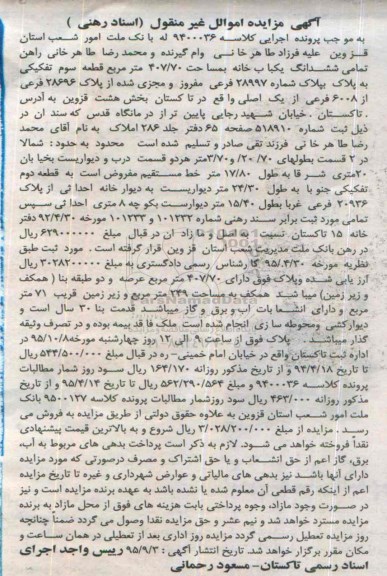 آگهی مزایده اموالل غیر منقول (اسناد رهنی )
به مو جب پرونده اجرایی کلاسه ۹۴۰۰۰۳۶ له با نک ملت امور شعب استان
قز وین علیه فرزاد طا هر خا نی وام گیرنده و محمد رضا طا هر خانی راهن
تمامی ششدانگ یکبا ب خانه بمساحت ۴۰۷/۷۰ متر مربع قطعه سوم تفکیکی
به پلاک بپلاک شماره ۲۸۹۹۷ فرعی مفروز و مجزی شده از پلاک ۲۸۶۹۶ فرعی
از ۶۰۰۸ فرعی از یک اصلی وا قع در تا کستان بخش هشت قزوین به آدرس
. تاکستان . خیابان شهید رجایی پایین تر از در مانگاه قدس که سند ان در
ذیل ثبت شماره ۵۱۸۹۱۰ صفحه ۶۵ دفتر جلد ۲۸۶ املاک به نام آقای محمد
رضا طا هر خا نی فرزند تقی صادر و تسلیم شده است محدود به حدود : شمالا
در ۲ قسمت بطولهای ۲۰/۷۰ و ۳/۷۰متر هردو قسمت درب و دیواریست بخیا بان
۲۰متری شر قا به طول ۱۷/۸۰ متر خط مستقیم مفروض است به قطعه دوم
تفکیکی جنو با به طول ۲۴/۳۰ متر دیواریست به دیوار خانه احدا ثی از پلاک
۲۰۹۳۶ فرعی غربا بطول ۱۵/۴۰ متر دیواریست بکو چه ۸ متری احدا ثی سپس
تمامی مورد ثبت برابر سند رهنی شماره ۱۰۱۲۳۲ و ۱۰۱۲۳۳ مورخه ۹۲/۴/۳۰ دفتر
خانه ۱۵ تاکستان نسبت به اصل و ما زاد ان در قبال مبلغ ۶۲۹۰۰۰۰۰۰ ریال
در رهن بانک ملت مدیریت شعب استان قز وین قرار گرفته است . مورد ثبت طبق
نظریه مورخه ۹۵/۴/۳۰ کا رشناس رسمی دادگستری به مبلغ ۳۰۲۸۲۰۰۰۰۰ ریال
ارز یابی شده وپلاک فوق دارای ۴۰۷/۷۰ متر مربع عرصه و دو طبقه بنا ( همکف
و زیر زمین) میبا شد همکف به مساحت ۲۴۹ متر مربع و زیر زمین قریب ۷۱ متر
مربع و دارای انشعا بات آب و برق و گاز میباشد قدمت بنا ۳۰ سال است و
دیوارکشی ومحوطه سا زی انجام شده است ملک فا قد بیمه بوده و در تصرف وثیقه
گذار میباشد پلاک فوق از ساعت ۹ الی ۱۲ روز چهارشنبه مورخه۹۵/۱۰/۸ در
اداره ثبت تاکستان واقع در خیابان امام خمینی- ره در قبال مبلغ ۵۴۴/۵۰۰/۰۰۰ ریال
تا تاریخ ۹۴/۴/۱۸ و از تاریخ مذکور روزانه ۱۶۴/۱۷۰ ریال سود روز شمار مطالبات
پرونده کلاسه ۹۴۰۰۰۳۶ و مبلغ ۵۶۲/۲۹۰/۵۶۴ ریال تا تاریخ ۹۵/۴/۱۴ و از تاریخ
مذکور روزانه ۴۶۳/۰۰۰ ریال سود روزشمار مطالبات پرونده کلاسه ۹۵۰۰۱۲۷ بانک
ملت امور شعب استان قزوین به علاوه حقوق دولتی از طریق مزایده به فروش می
رسد . مزایده از مبلغ ۳/۰۲۸/۲۰۰/۰۰۰ ریال شروع و به بالاترین قیمت پیشنهادی
نقداً فروخته خواهد می شود. لازم به ذکر است پرداخت بدهی های مربوط به آب،
برق، گاز اعم از حق انشعاب و یا حق اشتراک و مصرف درصورتی که مورد مزایده
دارای آنها باشد نیز بدهی های مالیاتی و عوارض شهرداری و غیره تا تاریخ مزایده
اعم از اینکه رقم قطعی آن معلوم شده یا نشده باشد به عهده برنده مزایده است و نیز
در صورت وجود مازاد، وجوه پرداختی بابت هزینه های فوق از محل مازاد به برنده
مزایده مسترد خواهد شد و نیم عشر و حق مزایده نقدا وصول می گردد ضمناً چنانچه
روز مزایده تعطیل رسمی گردد مزایده روز اداری بعد از تعطیلی در همان ساعت و
مکان مقرر برگزار خواهد شد. تاریخ انتشار آگهی : ۹۵/۹/۳ رییس واحد اجرای
اسناد رسمی تاکستان- مسعود رحمانی